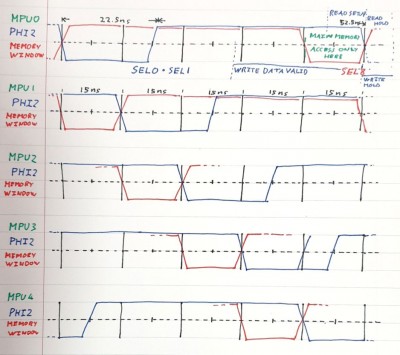 READ SETUP
MPU0 22.5ns 52.5ns READ HOLD
PHI2
MEMORY WINDOW
MAIN MEMORY ACCESS ONLY HERE
SEL0 • SEL1 WRITE DATA VALID
WRITE HOLD
MPU 1 15ns 15ns 15ns 15ns 15ns
PHI2
MEMORY WINDOW
MPU2
PHI2
MEMORY WINDOW
MPU3
PHI2
MEMORY WINDOW
MPU4
PHI2
MEMORY WINDOW